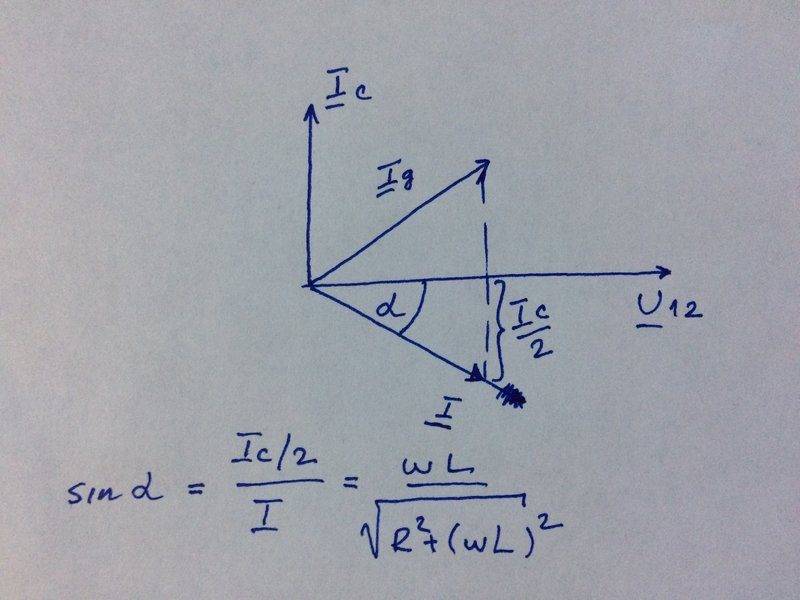 Ic
Ig
α
Ic/2
U12
I
sin α = Ic/2 / I = ωL / √R²+(ωL)²